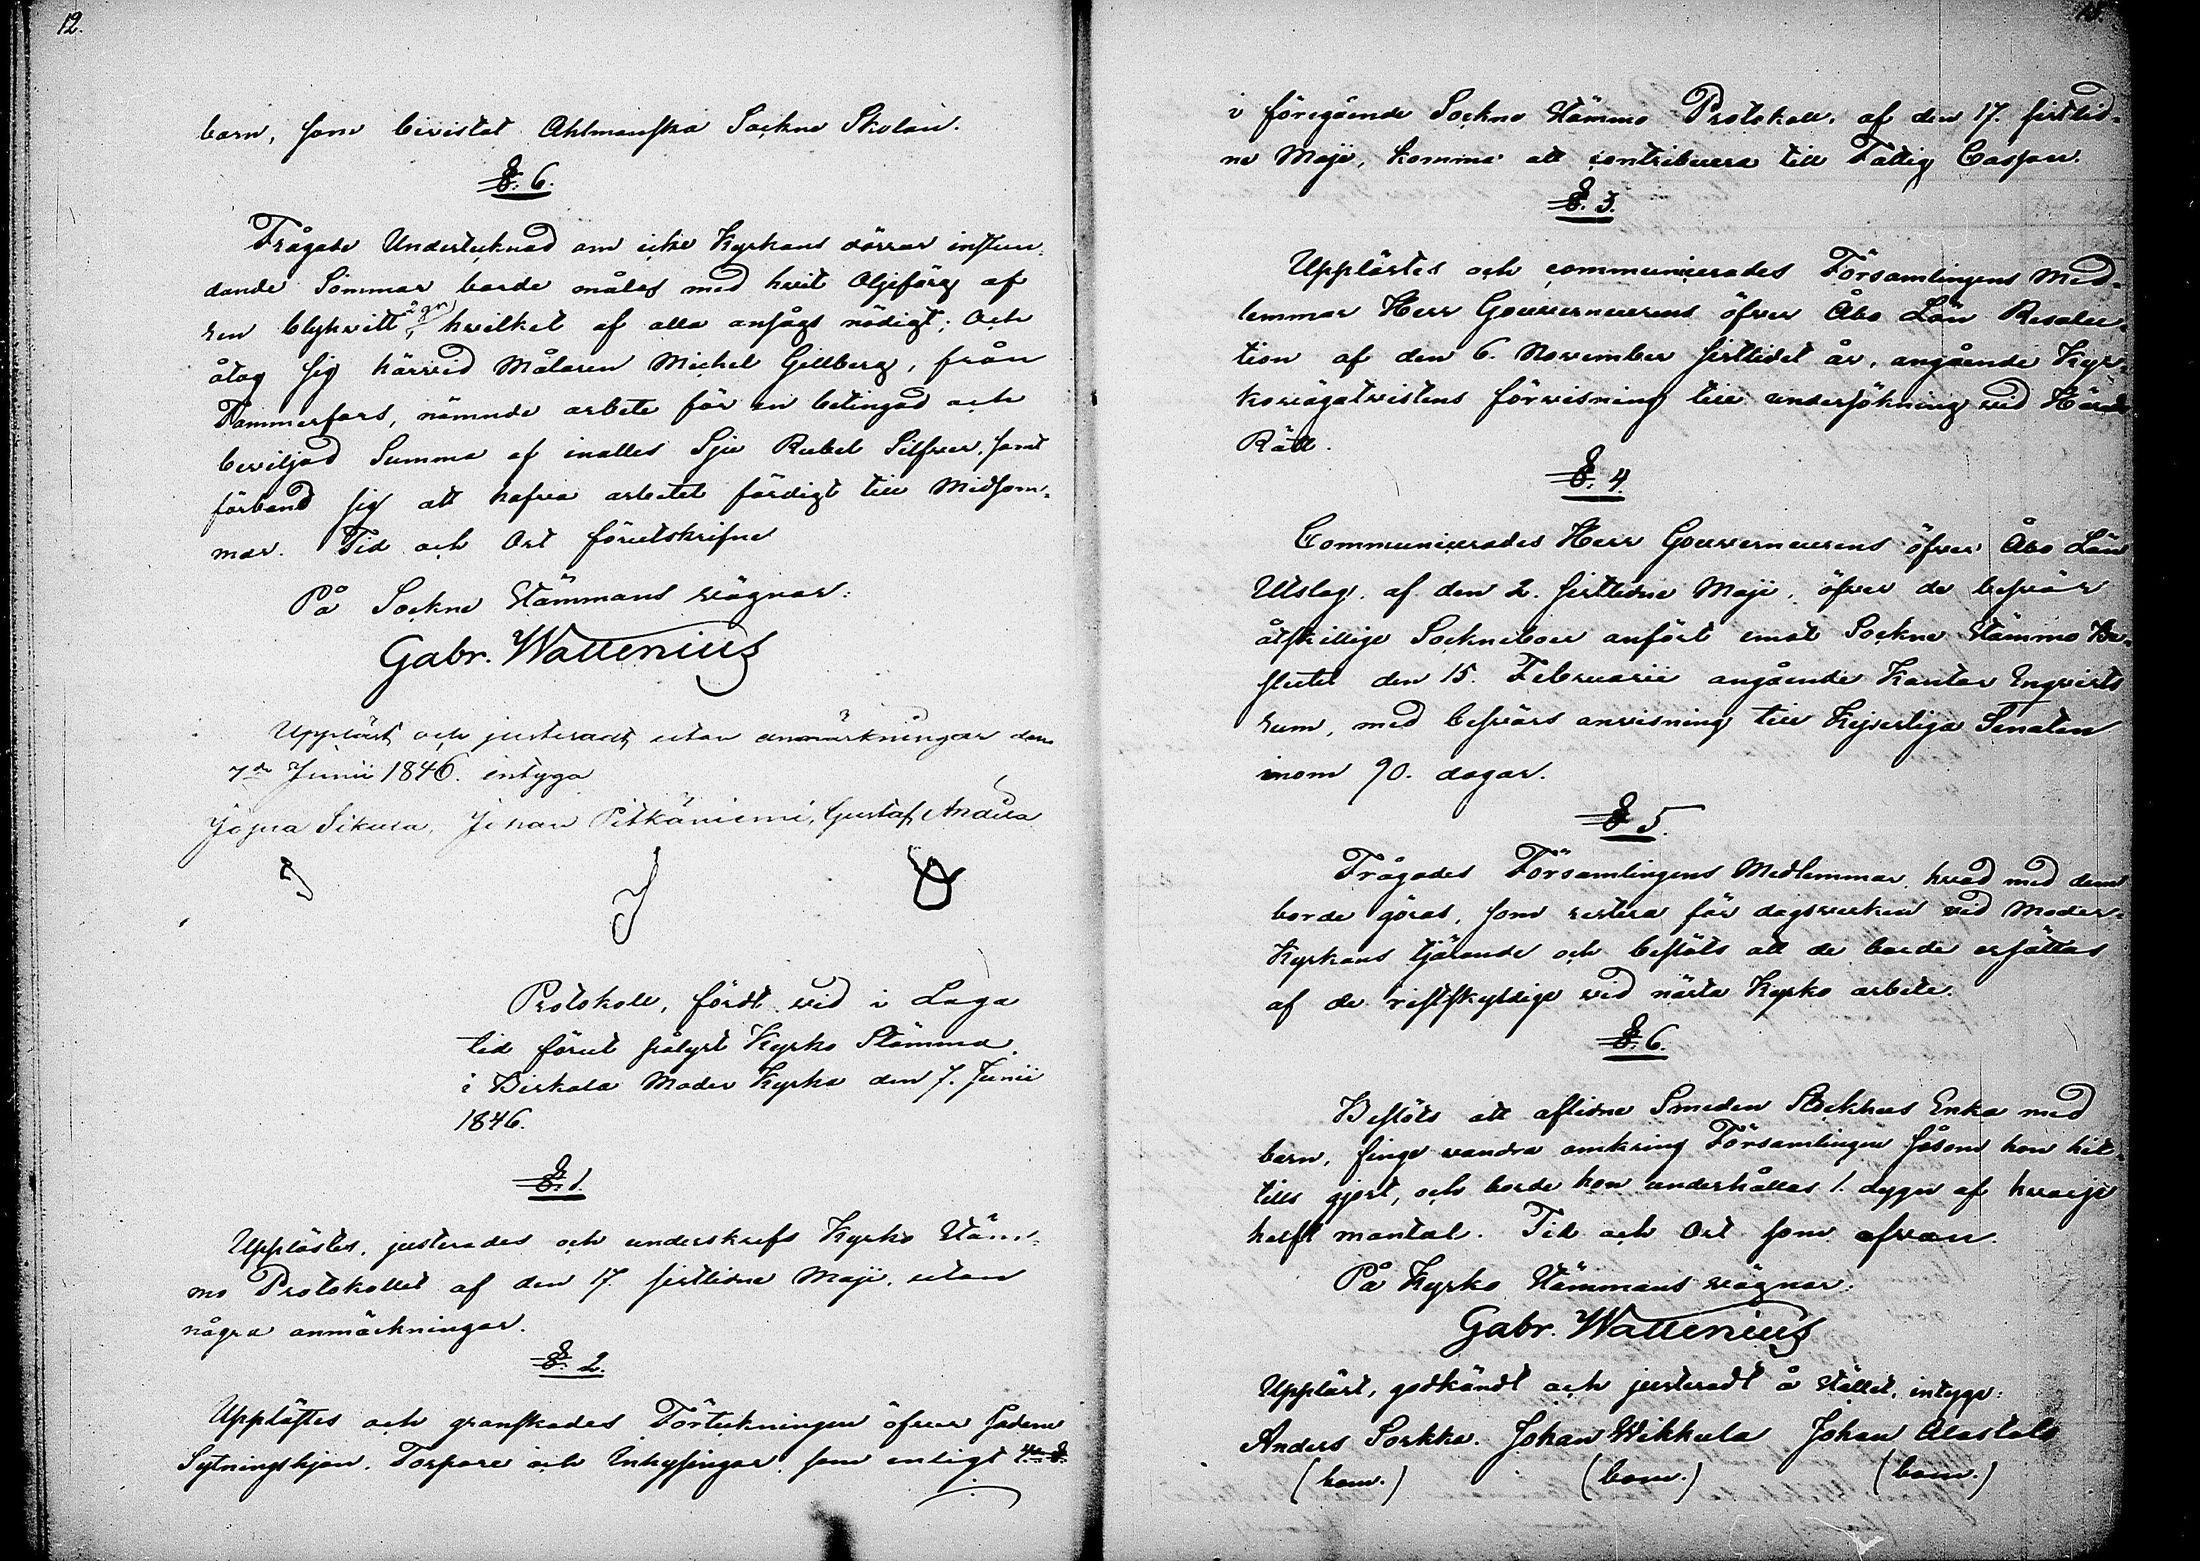 12.
barn, som bevistat Ahlmanska Sockne Skolan.
§. 6.
Frågade Undertecknad om icke Kyrkans dörrar instun-
dande Sommar borde målas med hvit Oljefärg af
ren blyhvitt, hvilket af alla ansågs nödigt; Och
åtog sig härvid Målaren Michel Gillberg, från
Tammerfors, nämnde arbete för en betingad och
beviljad Summa af inalles Sju Rubel Silfver, samt
förband sig att hafva arbetet färdigt till Midsom-
mar. Tid och Ort förutskrifne
På Sockne Stämmans vägnar:
Gabr. Wallenius
Uppläst och justeradt utan anmärkningar den
7de Junii 1846. intyga
Johan Pitkäniemi, Gustaf Andila
Protokoll, fördt vid i Laga
tid förut pålyst Kyrko Stämma
i Birkala Moder Kyrka den 7. Junii
1846.
§. 1.
Upplästes, justerades och underskrefs Kyrko Stäm-
mo Protokollet af den 17. sistlidne Maji, utan
några anmärkningar.
§. 2.
Upplästes och granskades Förteckningen öfver sådane
Sytningshjon, Torpare och Inhysingar, som enligt 4. §.
i föregående Sockne Stämmo Protokoll, af den 17. sistlid-
ne Maji, komma att contribuera till Fattig Cassan.
§. 3.
Upplästes och communicerades Församlingens Med-
lemmar Herr Gouverneurens öfver Åbo Län Resolu-
tion af den 6. November sistlidet år, angående Kyr-
kovägatvistens förvisning till undersökning vid Härads
Rätt.
§. 4.
Communicerades Herr Gouverneurens öfver Åbo Län
Utslag, af den 2. sistlidne Maji, öfver de besvär
åtskillige Sockneboer anfört emot Sockne Stämmo Be-
slutet den 15. Februarii angående Kantor Engvists
rum, med besvärs anvisning till Kejserliga Senaten
inom 90. dagar.
§ 5.
Frågades Församlingens Medlemmar, hvad med dem
borde göras, som restera för dagsverken vid Moder-
Kyrkans tjärande och beslöts att de borde ersättas
af de ristskyldige vid nästa Kyrko arbete.
§. 6.
Beslöts att aflidne Smeden Stockhus Enka med
barn, finge vandra omkring Församlingen såsom hon hit-
tills gjort, och borde hon underhållas 1. dygn af hvarje
helft mantal. Tid och Ort som ofvan
På Kyrko Stämmans vägnar:
Gabr. Wallenius
Uppläst, godkändt och justeradt å stället, intyga:
Anders Sorkka. Johan Wikkula Johan Alastalo
(bom.) (bom.) (bom.)